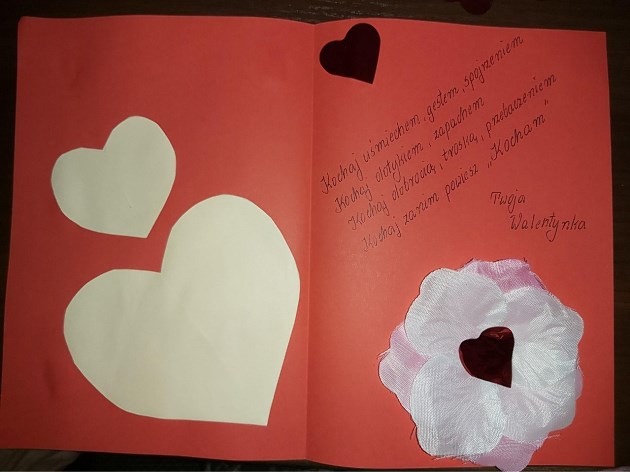 Kochaj uśmiechem, gestem, spojrzeniem
Kochaj dotykiem, zapachem
Kochaj dobrocią, troską, przebaczeniem
Kochaj zanim powiesz „Kocham”
Twoja
Walentynka